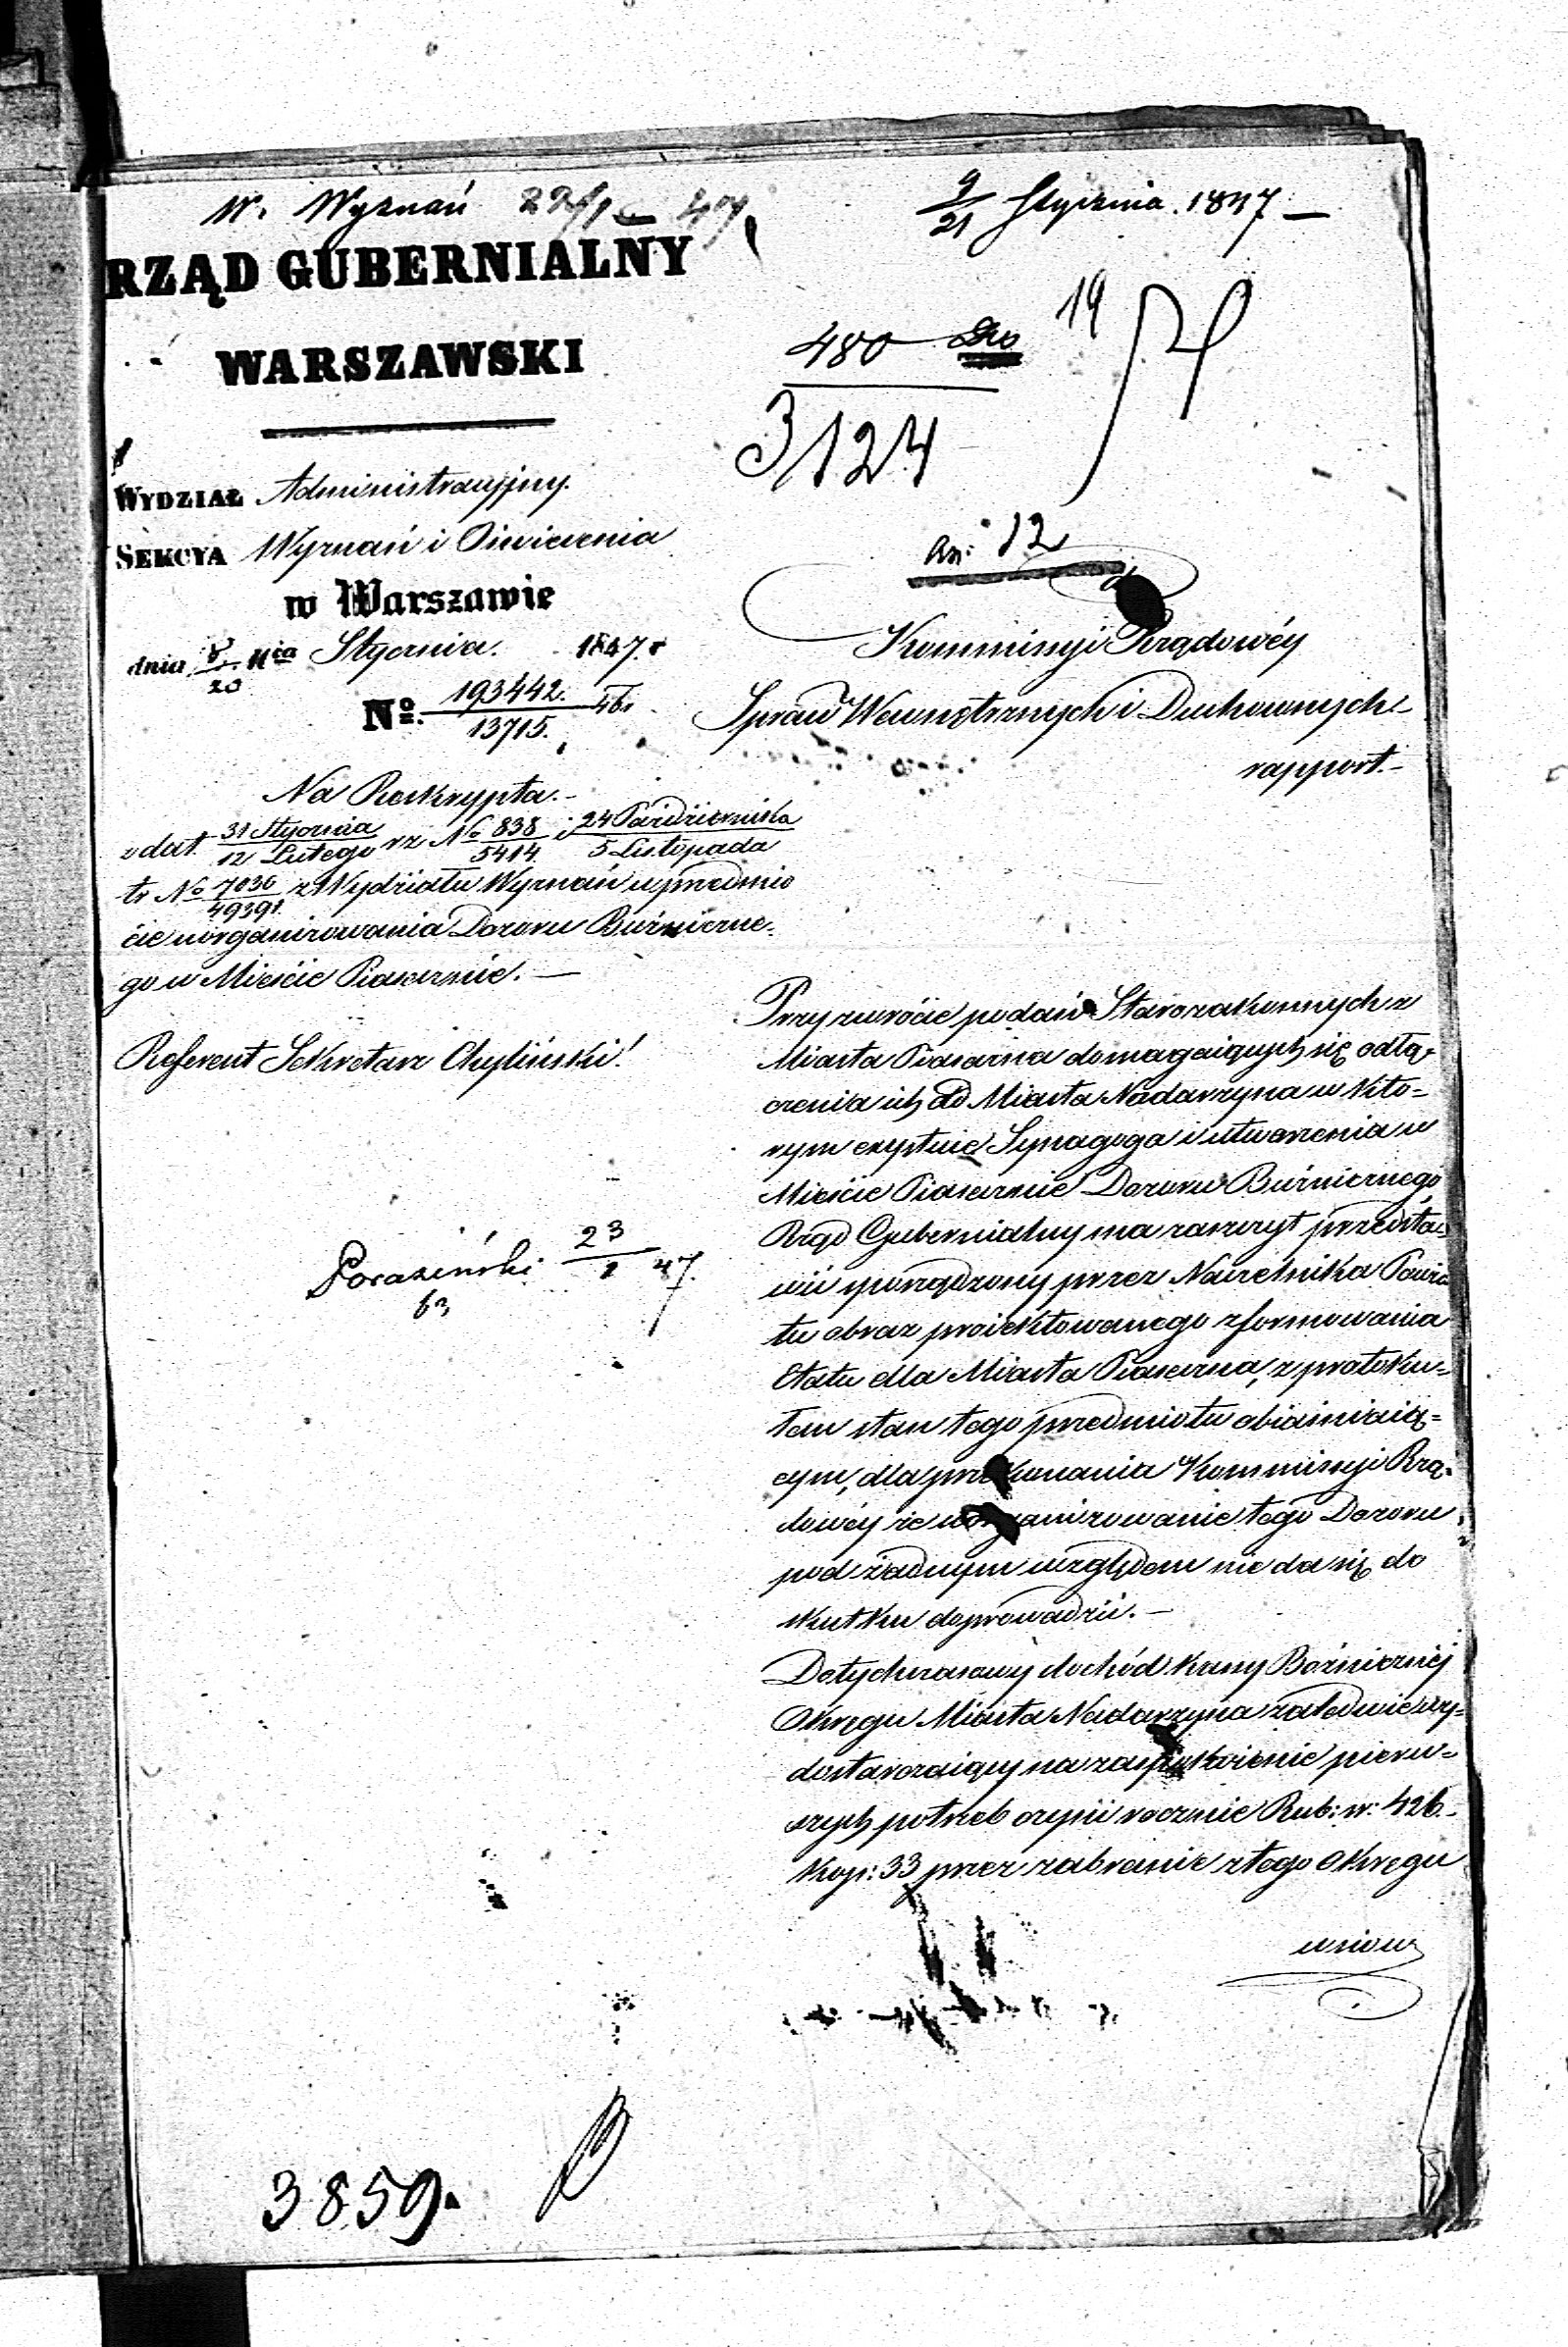 W. Wyznań 22/1 47
9/21 Stycznia. 1847 —
RZĄD GUBERNIALNY
WARSZAWSKI
480
3124
19
WYDZIAŁ Administracyjny.
SEKCYA Wyznań i Oświecenia
w Warszawie
dnia 8/20 Mca Stycznia. 1847. r
No. 193442./13715. 46.
Na Reskrypta.—
z dat. 31 Stycznia/12 Lutego rz No 838/5414. i 24 Października/5 Listopada
tr No 7036/49391. z Wydziału Wyznań w przedmio
cie uorganizowania Dozoru Bużniczne-
go w Mieście Piasecznie. —
Referent Sekretarz Chyliński!
Poraziński 23/1 47.
an: 12
Kommissyi Rządowéy
Spraw Wewnętrznych i Duchownych
rapport.—
Przy zwrócie podań Starozakonnych z
Miasta Piaseczna domagaiących się odłą-
czenia ich od Miasta Nadarzyna w któ-
rym exystuie Synagoga i utworzenia w
Mieście Piasecznie Dozoru Bużnicznego
Rząd Gubernialny ma zaszczyt przedsta-
wić sporządzony przez Naczelnika Powia
tu obraz proiektowanego zformowania
Etatu dla Miasta Piaseczna, z protoku-
łem stan tego przedmiotu obiaśniaią-
cym, dla przekonania Kommissyi Rzą-
dowéy że uorganizowanie tego Dozoru
pod żadnym względem nie da się do
skutku doprowadzić. —
Dotychczasowy dochód kassy Bożniczniéj
Okręgu Miasta Nadarzyna zaledwie wy-
dostarczaiący na zaspokoienie pierw-
szych potrzeb czyni rocznie Rub: sr: 426.
Kop: 33 przez zabranie z tego Okręgu
wsiow
3859.